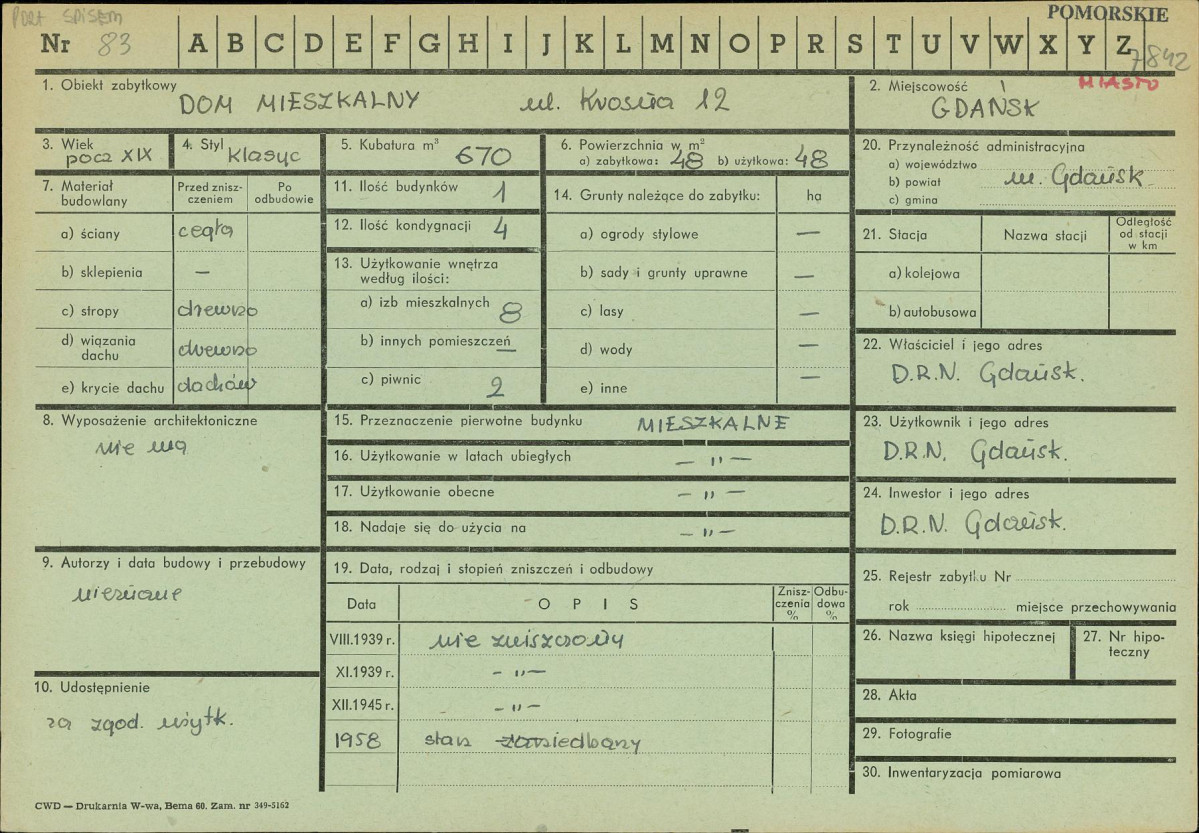 PORT SPISEM
POMORSKIE
Nr 83 A B C D E F G H I J K L M N O P R S T U V W X Y Z
7842
1. Obiekt zabytkowy DOM MIESZKALNY ul. Krosna 12
2. Miejscowość GDAŃSK
MIASTO
3. Wiek pocz XIX
4. Styl klasyc
5. Kubatura m³ 670
6. Powierzchnia w m²
a) zabytkowa: 48 b) użytkowa: 48
20. Przynależność administracyjna
a) województwo
b) powiat m. Gdańsk
c) gmina
7. Materiał budowlany
Przed zniszczeniem
Po odbudowie
a) ściany cegła
b) sklepienia —
c) stropy drewno
d) wiązania dachu drewno
e) krycie dachu dachów
11. Ilość budynków 1
12. Ilość kondygnacji 4
13. Użytkowanie wnętrza
według ilości:
a) izb mieszkalnych 8
b) innych pomieszczeń —
c) piwnic 2
14. Grunty należące do zabytku: ha
a) ogrody stylowe —
b) sady i grunty uprawne —
c) lasy —
d) wody —
e) inne —
21. Stacja Nazwa stacji
Odległość od stacji w km
a) kolejowa
b) autobusowa
22. Właściciel i jego adres
D.R.N. Gdańsk.
8. Wyposażenie architektoniczne
nie ma
15. Przeznaczenie pierwotne budynku MIESZKALNE
16. Użytkowanie w latach ubiegłych — " —
17. Użytkowanie obecne — " —
18. Nadaje się do użycia na — " —
23. Użytkownik i jego adres
D.R.N. Gdańsk.
24. Inwestor i jego adres
D.R.N. Gdańsk.
9. Autorzy i data budowy i przebudowy
nieznane
10. Udostępnienie
za zgod. użytk.
19. Data, rodzaj i stopień zniszczeń i odbudowy
Data OPIS Zniszczenia % Odbudowa %
VIII.1939 r. nie zniszczony
XI.1939 r. — " —
XII.1945 r. — " —
1958 stan zaniedbany
25. Rejestr zabytku Nr
rok miejsce przechowywania
26. Nazwa księgi hipotecznej
27. Nr hipoteczny
28. Akta
29. Fotografie
30. Inwentaryzacja pomiarowa
CWD — Drukarnia W-wa, Bema 60. Zam. nr 349-5162